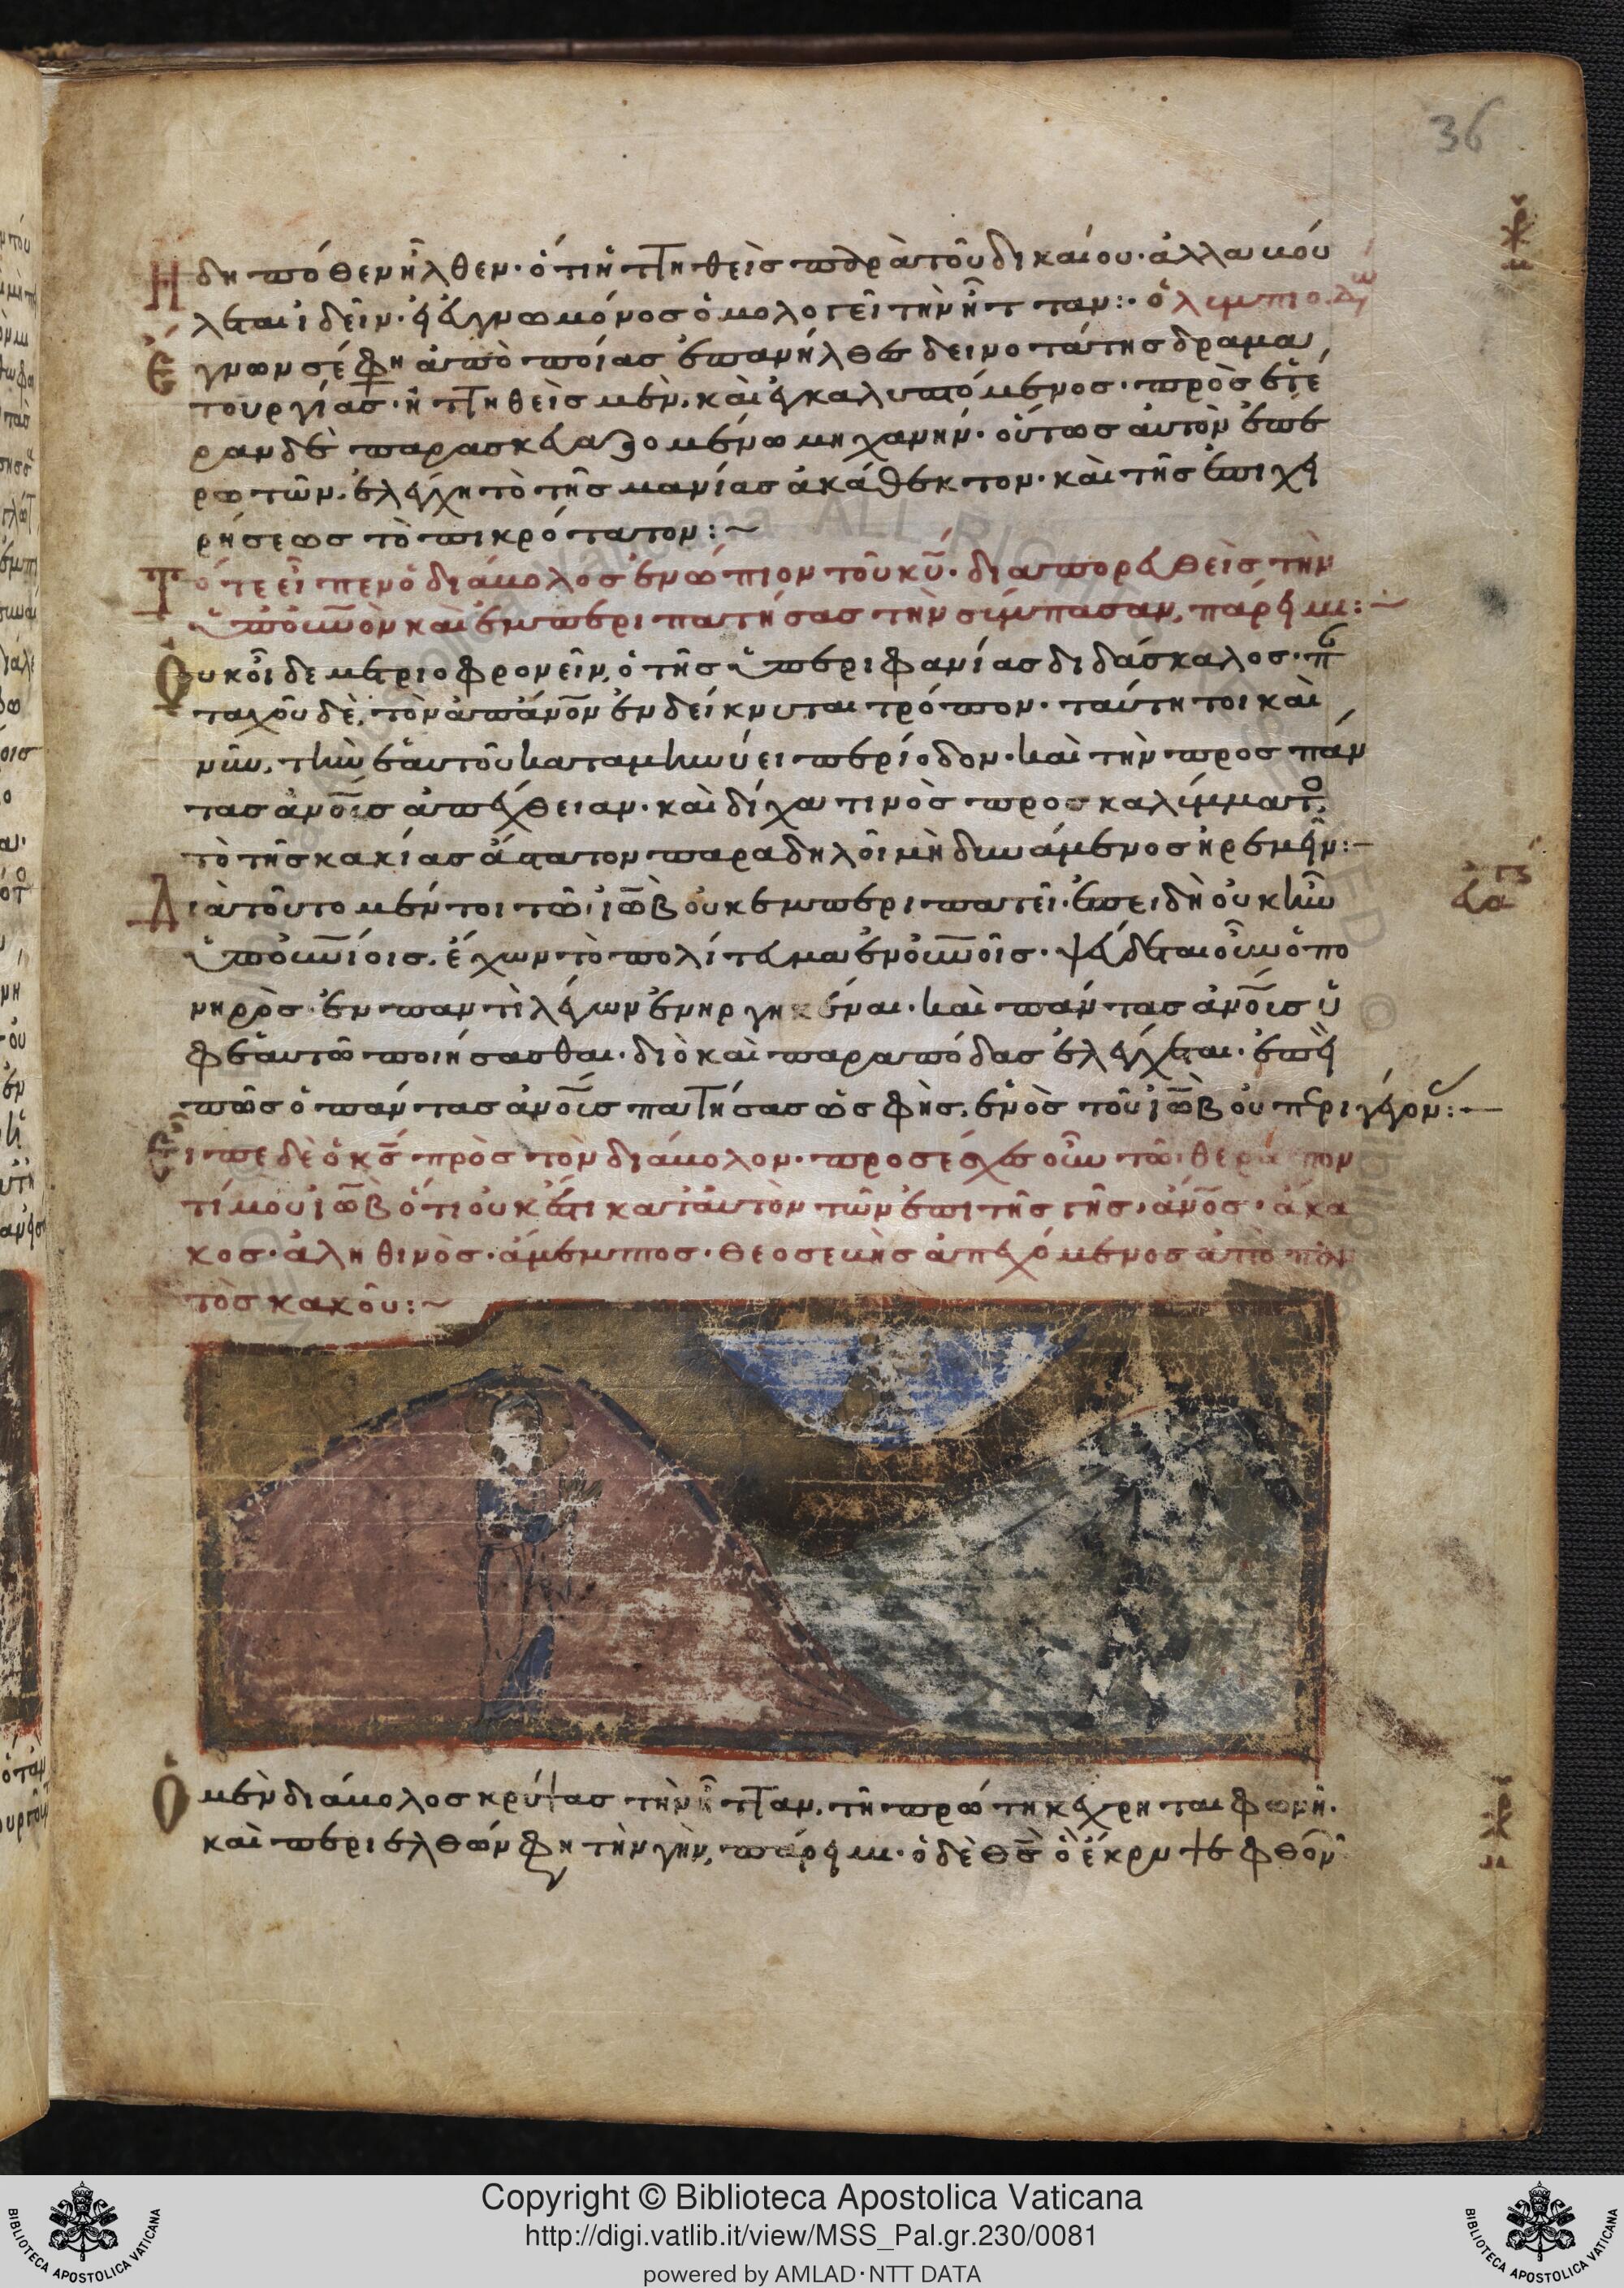 36
Ἤδη πόθεν ἦλθεν· ὅτι ἡττηθεὶς παρὰ τοῦ δικαίου· ἀλλὰ βού
λεται ἰδεῖν· εἰ εὐγνωμόνως ὁμολογεῖ τὴν ἧτταν:· ὀλυμπιοδώ
Ἔγνων σέ φη ἀπὸ ποίας ἐπανῆλθες δεινοτάτης δραμα
τουργίας· ἡττηθεὶς μὲν, καὶ ἐγκαλυπτόμενος· πρὸς ἑτέ
ραν δὲ παρασκευαζομένω μηχανήν· οὕτως αὐτὸν ἐπε
ρωτῶν, ἐλέγχη τὸ τῆς μανίας ἀκάθεκτον· καὶ τῆς ἐπιχει
ρήσεως τὸ πικρότατον:~
Τότε εἶπεν ὁ διάβολος ἐνώπιον τοῦ κυ· διαπορευθεὶς τὴν
ὑπ οὐνὸν καὶ ἐμπεριπατήσας τὴν σύμπασαν, πάρειμι:~
Οὐκ οἶδε μετριοφρονεῖν, ὁ τῆς ὑπεριφανίας διδάσκαλος· π
ταχοῦ δὲ, τὸν ἀπάνον ἐνδείκνυται τρόπον· ταύτη τοι καὶ
νῦν, τὴν ἑαυτοῦ καταμηνύει περίοδον· καὶ τὴν πρὸς πάν
τας ἀνοις ἀπέχθειαν· καὶ δίχα τινὸς προσκαλύμματο,
τὸ τῆς κακίας ἄστατον παραδηλοῖ μὴ δυνάμενος ἠρεμεῖν:~
Διὰ τοῦτο μέντοι τῶ ἰὼβ οὐκ ἐμπεριπατεῖ· ἐπειδὴ οὐκ ἦν
ὑπ οὐνίοις, ἔχων τὸ πολίτευμα ἐν οὐνοῖς· ψεύδεται οὖν ὁ πο
νηρὸς· ἐν παντὶ λέγων ἐνηργηκέναι· καὶ πάντας ἀνοις ὑ
φ ἑαυτῶ ποιήσασθαι· διὸ καὶ παρὰ πόδας ἐλέγχεται· ἐπεὶ
πῶς ὁ πάντας ἀνοις πατήσας ὡς φὴς, ἑνὸς τοῦ ἰὼβ οὐ περιγέγον:~
Εἶπε δὲ ὁ κς πρὸς τὸν διάβολον· προσέσχες οὖν τῶ θεράπον
τί μου ἰὼβ ὅτι οὐκ ἔστι κατ αὐτὸν τῶν ἐπι τῆς γῆς, ἀνος· ἄκα
κος· ἀληθινὸς· ἄμεμπτος· θεοσεβὴς ἀπεχόμενος ἀπὸ παν
τὸς κακοῦ:~
Ὁ μὲν διάβολος κρύψας τὴν ἧτταν, τῆ πρώτη κέχρηται φωνῆ·
καὶ περιελθών φη τὴν γὴν, πάρειμι· ὁ δὲ θς ὃ ἔκρυψε φθον
Copyright © Biblioteca Apostolica Vaticana
http://digi.vatlib.it/view/MSS_Pal.gr.230/0081
powered by AMLAD·NTT DATA
BIBLIOTECA APOSTOLICA VATICANA
BIBLIOTECA APOSTOLICA VATICANA